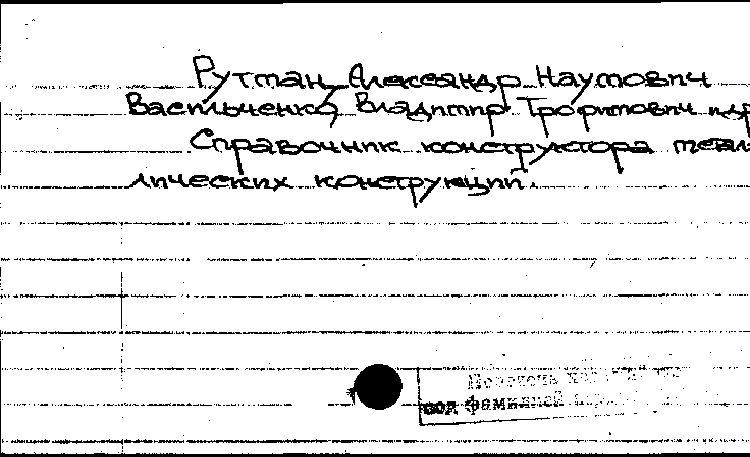 Рутман Александр Наумович
Васильченко, Владимир Трофимович и др
Справочник конструктора метал-
лических конструкций.
Перечень
под фамилией